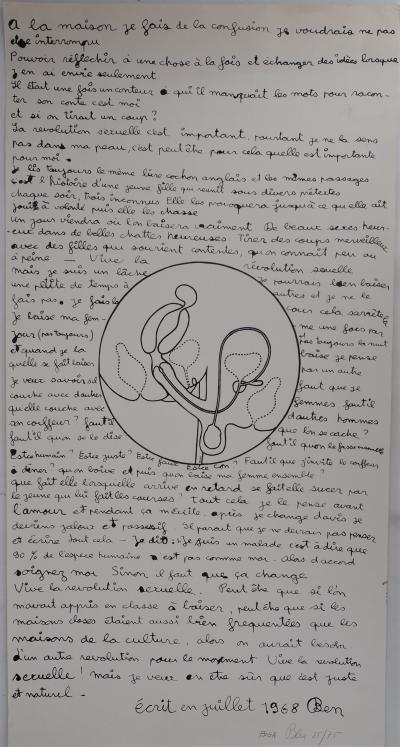 A la maison je fais de la confusion je voudrais ne pas
etre interrompu
Pouvoir réfléchir à une chose à la fois et échanger des idées lorsque
j'en ai envie seulement
Il était une fois un conteur a qui il manquait les mots pour racon-
ter son conte c'est moi
et si on tirait un coup?
La revolution sexuelle c'est important, pourtant je ne la sens
pas dans ma peau, c'est peut être pour cela quelle est importante
pour moi.
Je lis toujours le même livre cochon anglais et les mêmes passages
c'est l'histoire d'une jeune fille qui reunit sous divers prétextes
chaque soir, trois inconnus Elle les provoquera jusqu'à ce qu'elle ait
joui à volonté puis elle les chasse
un jour viendra où l'on baisera vraiment De beaux sexes heur-
eux dans de belles chattes heureuses. Tirer des coups merveilleux
avec des filles qui sourient contentes, qu'on connait peu ou
à peine — Vive la revolution sexuelle
mais je suis un lâche je pourrais bien baiser
une petite de temps à autres et je ne le
fais pas. je fais la cour cela s'arrête là
Je baise ma fem- me une fois par
jour (pas toujours) pas toujours la nuit
et quand je la baise je pense
quelle se fait baiser par un autre
Je veux savoir s'il faut que je
couche avec d'autres femmes faut'il
quelle couche avec d'autres hommes
son coiffeur? faut'il que l'on se cache?
faut'il quon se le dise faut'il quon le fasse
Est ce humain? Est ce juste? Est ce faux Est ce con? Faut'il que j'invite le coiffeur
à diner? qu'on boive et puis quon baise ma femme ensemble
que fait elle lorsquelle arrive en retard se fait elle sucer par
le jeune qui lui fait les courses? Tout cela je le pense avant
l'amour et pendant ça m'excite. après je change d'avis je
deviens jaloux et possessif. Il parait que je ne devrais pas penser
et écrire tout cela — Je suis un malade c'est à dire que
90 % de l'espece humaine n'est pas comme moi. Alors d'accord
soignez moi Sinon il faut que ça change
Vive la revolution sexuelle. Peut être que si l'on
nous apprit en classe à baiser, peut être que si les
maisons closes étaient aussi bien frequentées que les
maisons de la culture, alors on aurait besoin
d'un autre revolution pour le moment Vive la revolution
sexuelle! mais je veux en etre sûr que c'est juste
et naturel -
écrit en juillet 1968 Ben
Ben 25/75